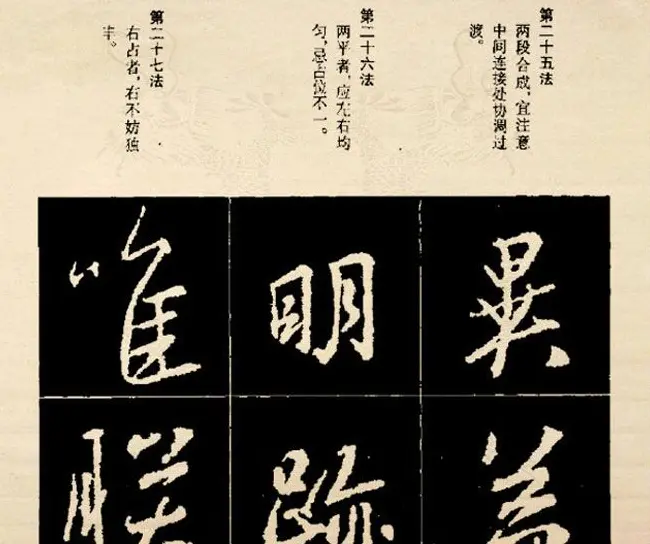 第二十五法
两段合成，宜注意
中间连接处协调过
渡。
第二十六法
两平者，应左右均
匀，忌占位不一。
第二十七法
右占者，右不妨独
丰。
異
盖
明
跡
唯